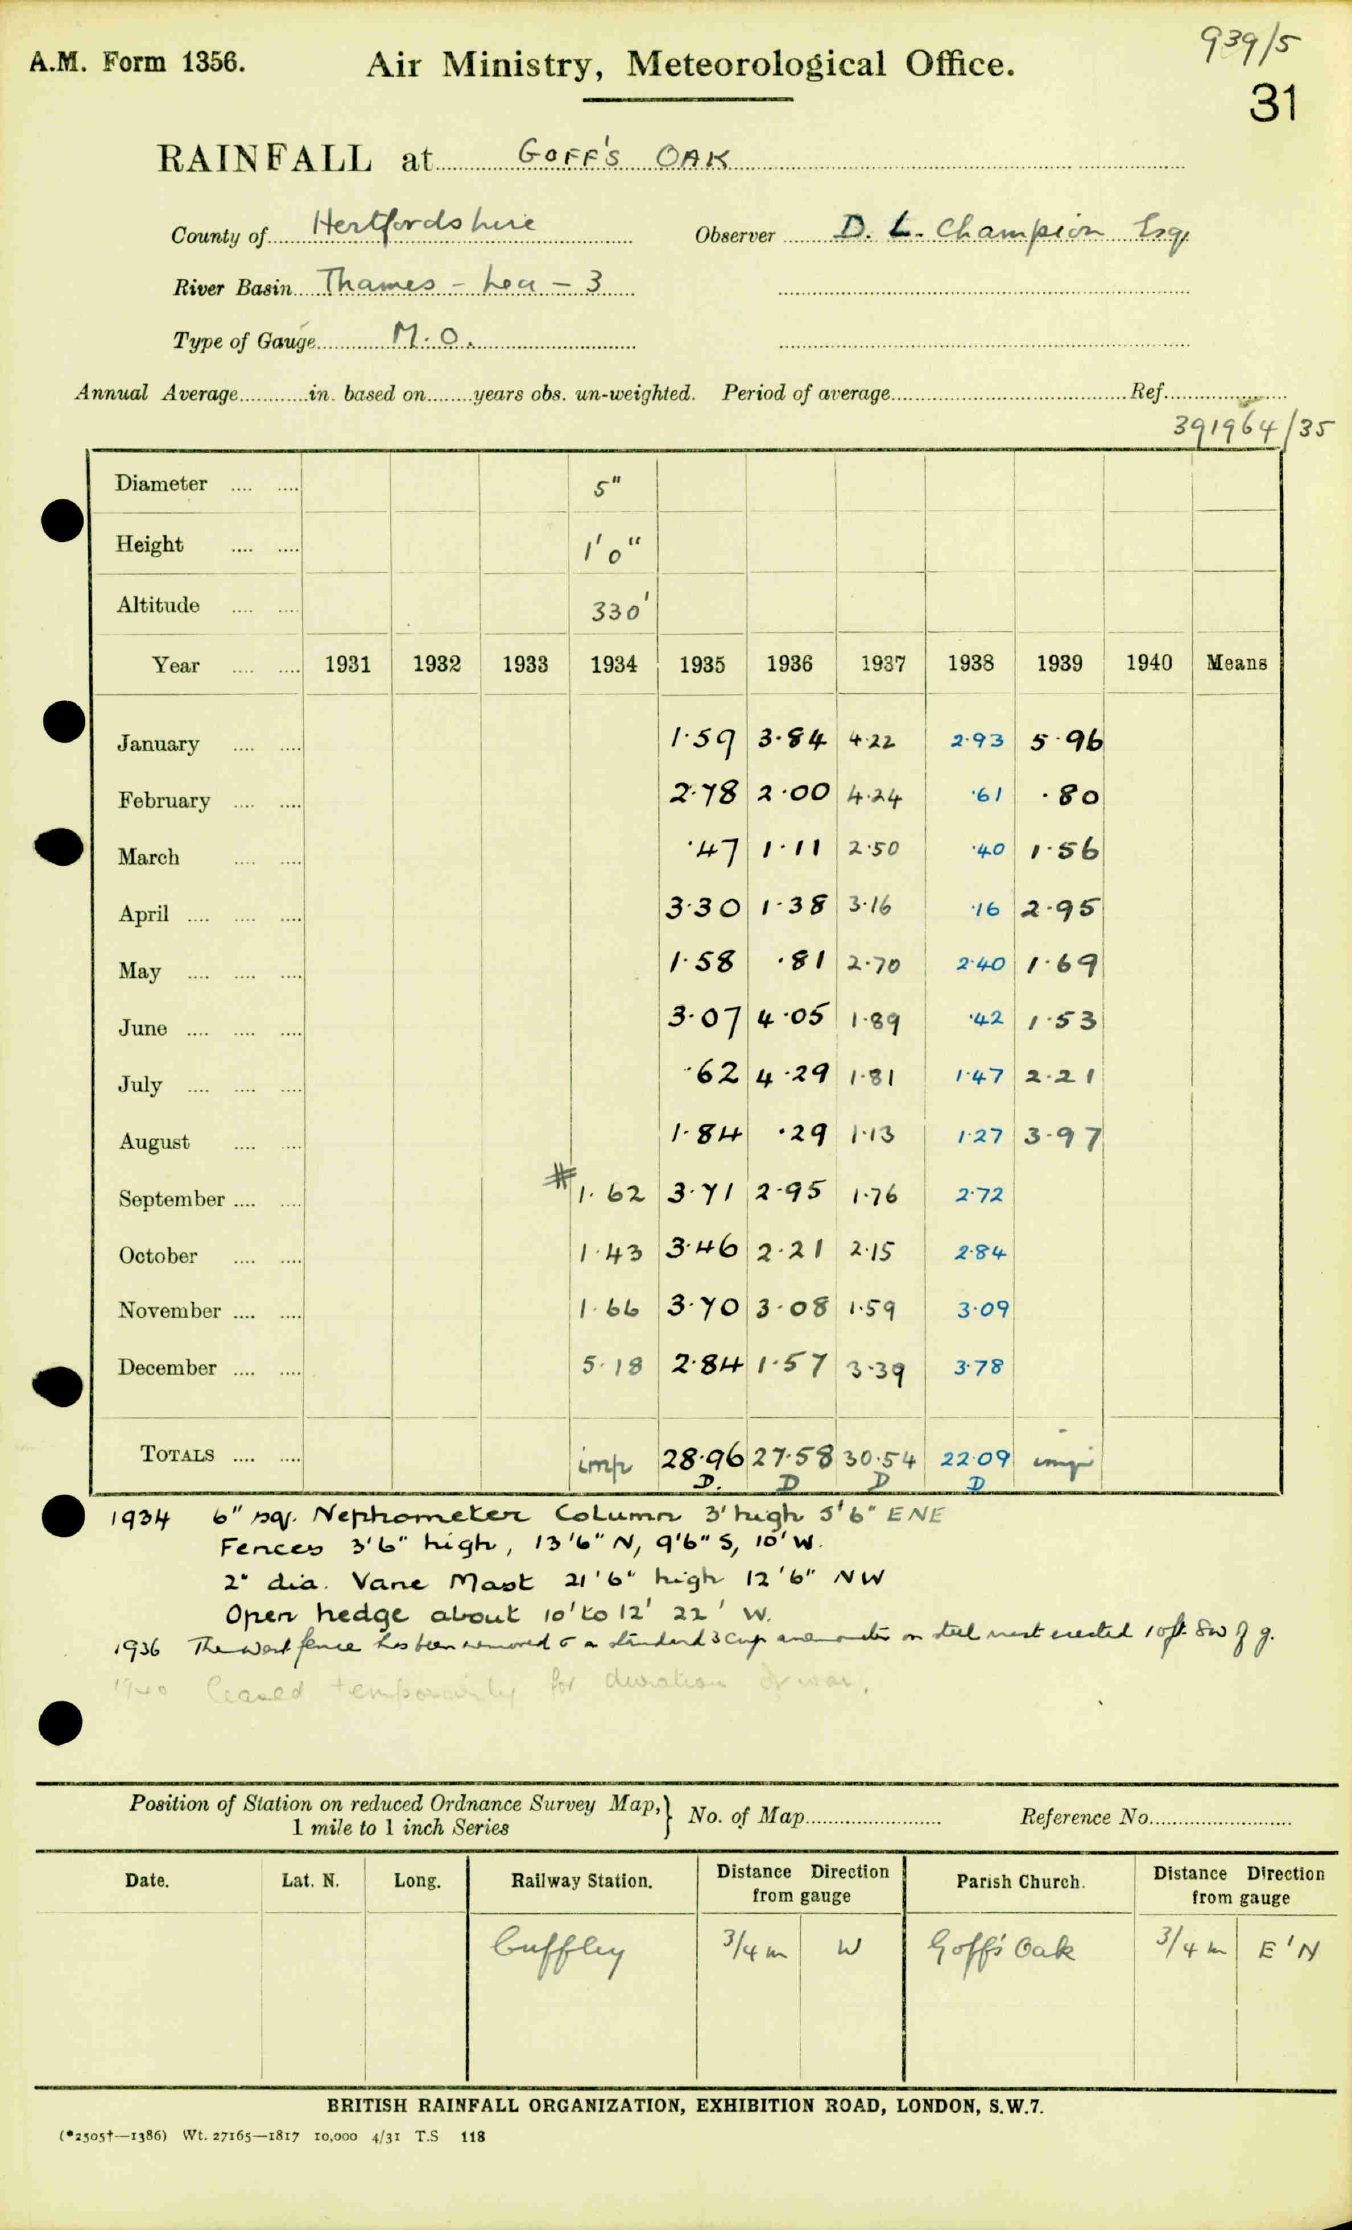 939/5
A.M. Form 1356. Air Ministry, Meteorological Office.
31
RAINFALL at GOFF'S OAK
County of Hertfordshire Observer D. L. Champion Esq.
River Basin Thames - Lea - 3
Type of Gauge M.O.
Annual Average in. based on years obs. un-weighted. Period of average Ref.
391964/35
Diameter 5"
Height 1'0"
Altitude 330'
Year 1931 1932 1933 1934 1935 1936 1937 1938 1939 1940 Means
January 1.59 3.84 4.22 2.93 5.96
February 2.78 2.00 4.24 .61 .80
March .47 1.11 2.50 .40 1.56
April 3.30 1.38 3.16 .16 2.95
May 1.58 .81 2.70 2.40 1.69
June 3.07 4.05 1.89 .42 1.53
July .62 4.29 1.81 1.47 2.21
August 1.84 .29 1.13 1.27 3.97
September # 1.62 3.71 2.95 1.76 2.72
October 1.43 3.46 2.21 2.15 2.84
November 1.66 3.70 3.08 1.59 3.09
December 5.18 2.84 1.57 3.39 3.78
TOTALS imp 28.96 27.58 30.54 22.09 imp
D. D D D
1934 6" sq. Nephometer Column 3' high 5'6" ENE
Fences 3'6" high, 13'6" N, 9'6" S, 10' W.
2" dia. Vane Mast 21'6" high 12'6" NW
Open hedge about 10' to 12' 22' W.
1936 The west fence has been removed & a standard 3 cup anemometer on steel mast erected 10 ft. SW of g.
1940 Ceased temporarily for duration of war.
Position of Station on reduced Ordnance Survey Map,} No. of Map Reference No.
1 mile to 1 inch Series
Date. Lat. N. Long. Railway Station. Distance Direction from gauge Parish Church. Distance Direction from gauge
Cuffley 3/4 m W Goff's Oak 3/4 m E'N
BRITISH RAINFALL ORGANIZATION, EXHIBITION ROAD, LONDON, S.W.7.
(*2505†—1386) Wt. 27165—1817 10,000 4/31 T.S 118